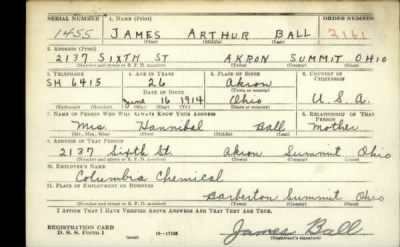 SERIAL NUMBER 1. NAME (Print) ORDER NUMBER
1455 JAMES ARTHUR BALL 2161
(First) (Middle) (Last)
2. ADDRESS (Print)
2137 SIXTH ST AKRON SUMMIT OHIO
(Number and street or R. F. D. number) (Town) (County) (State)
3. TELEPHONE 4. AGE IN YEARS 5. PLACE OF BIRTH 6. COUNTRY OF CITIZENSHIP
SH 6415 26 Akron
(Town or county)
DATE OF BIRTH
June 16 1914 Ohio U.S.A.
(Exchange) (Number) (Mo.) (Day) (Yr.) (State or country)
7. NAME OF PERSON WHO WILL ALWAYS KNOW YOUR ADDRESS 8. RELATIONSHIP OF THAT PERSON
Mrs. Hannibal Ball Mother
(Mr., Mrs., Miss) (First) (Middle) (Last)
9. ADDRESS OF THAT PERSON
2137 Sixth St. Akron Summit Ohio
(Number and street or R. F. D. number) (Town) (County) (State)
10. EMPLOYER'S NAME
Columbia Chemical
11. PLACE OF EMPLOYMENT OR BUSINESS
Barberton Summit Ohio
(Number and street or R. F. D. number) (Town) (County) (State)
I AFFIRM THAT I HAVE VERIFIED ABOVE ANSWERS AND THAT THEY ARE TRUE.
REGISTRATION CARD
D. S. S. FORM 1 (over) 16-17105 James Ball
(Registrant's signature)